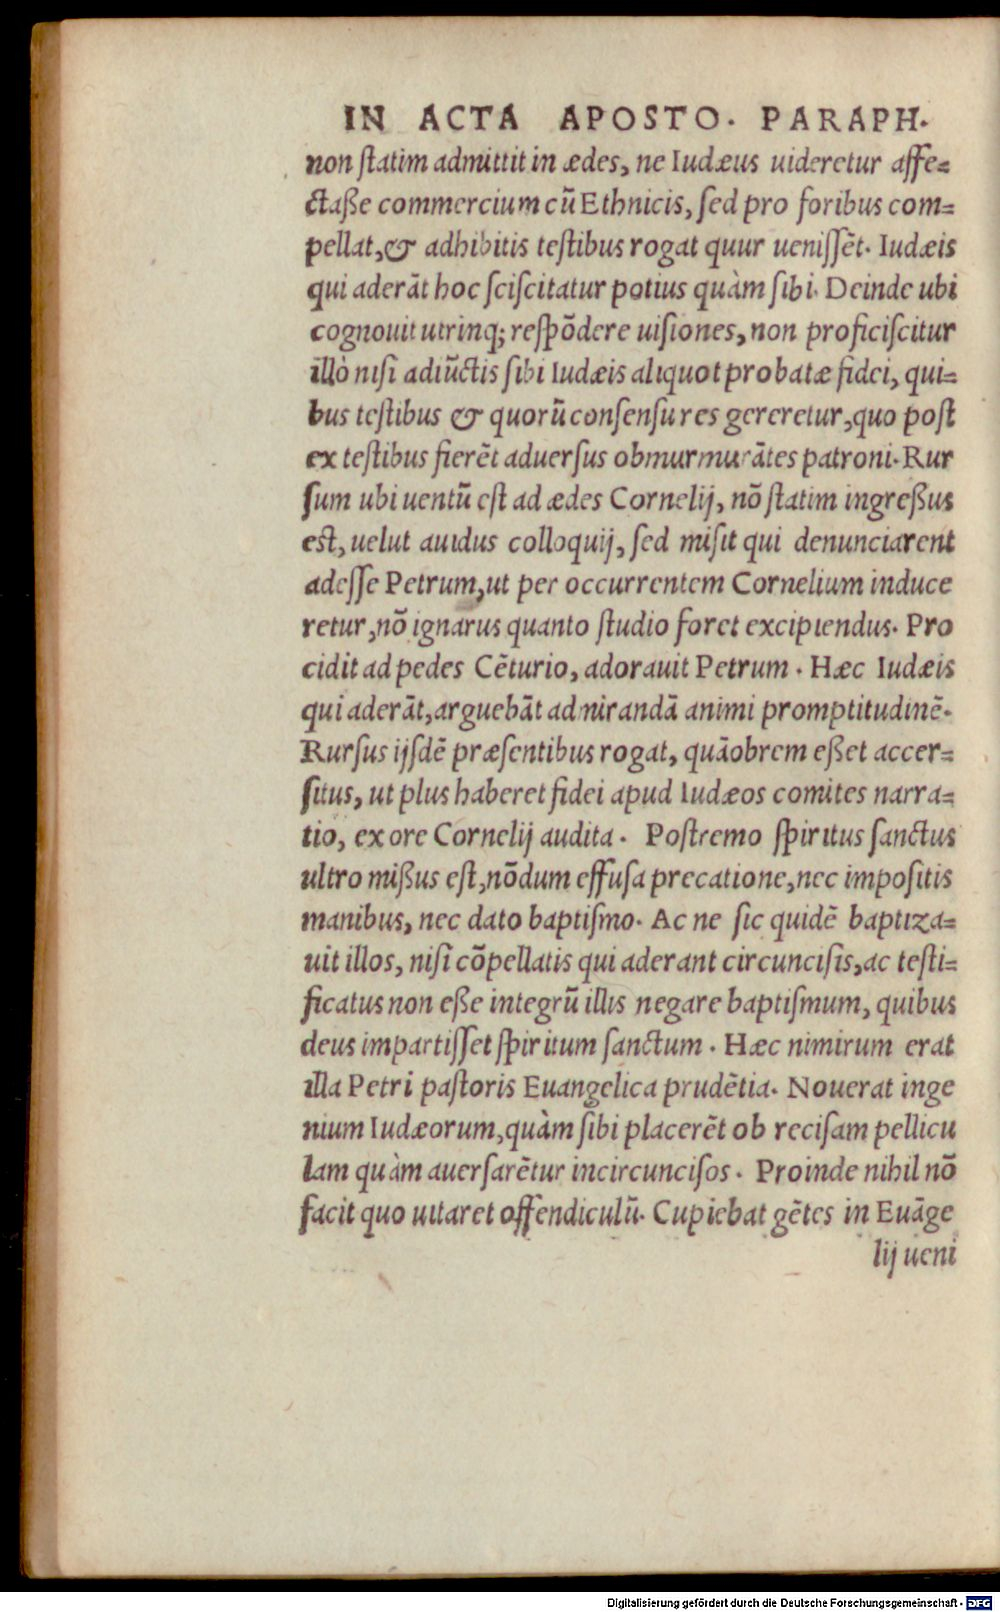 IN ACTA APOSTO. PARAPH.
non ſtatim admittit in ædes, ne Iudæus uideretur affe=
ctaße commercium cũ Ethnicis, ſed pro foribus com=
pellat, & adhibitis teſtibus rogat quur ueniſſẽt. Iudæis
qui aderãt hoc ſciſcitatur potius quàm ſibi. Deinde ubi
cognouit utrinq; reſpõdere uiſiones, non proficiſcitur
illò niſi adiũctis ſibi Iudæis aliquot probatæ fidei, qui=
bus teſtibus & quorũ conſenſu res gereretur, quo poſt
ex teſtibus fierẽt aduerſus obmurmurãtes patroni. Rur
ſum ubi uentũ eſt ad ædes Cornelij, nõ ſtatim ingreßus
est, uelut auidus colloquij, ſed miſit qui denunciarent
adeſſe Petrum, ut per occurrentem Cornelium induce
retur, nõ ignarus quanto ſtudio foret excipiendus. Pro
cidit ad pedes Cẽturio, adorauit Petrum. Hæc Iudæis
qui aderãt, arguebãt admirandã animi promptitudinẽ.
Rurſus ijſdẽ præſentibus rogat, quãobrem eßet accer=
ſitus, ut plus haberet fidei apud Iudæos comites narra=
tio, ex ore Cornelij audita. Poſtremo ſpiritus ſanctus
ultro mißus eſt, nõdum effuſa precatione, nec impoſitis
manibus, nec dato baptiſmo. Ac ne ſic quidẽ baptiza=
uit illos, niſi cõpellatis qui aderant circunciſis, ac teſti=
ficatus non eße integrũ illis negare baptiſmum, quibus
deus impartiſſet ſpiritum ſanctum. Hæc nimirum erat
illa Petri paſtoris Euangelica prudẽtia. Nouerat inge
nium Iudæorum, quàm ſibi placerẽt ob reciſam pellicu
lam quàm auerſarẽtur incircunciſos. Proinde nihil nõ
facit quo uitaret offendiculũ. Cupiebat gẽtes in Euãge
lij ueni
Digitalisierung gefördert durch die Deutsche Forschungsgemeinschaft - DFG